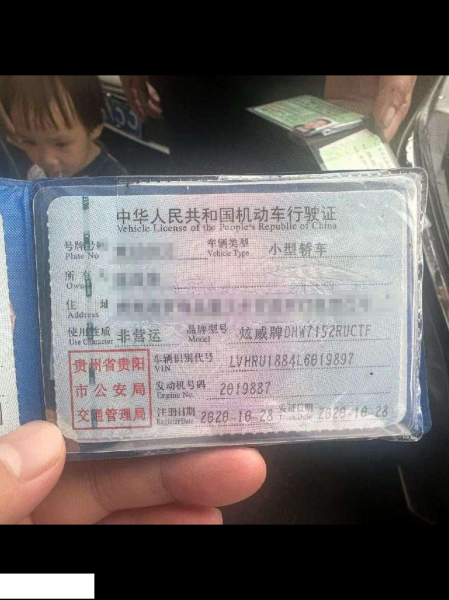 中华人民共和国机动车行驶证
Vehicle License of the People's Republic of China
号牌号码 车辆类型 小型轿车
Plate No Vehicle Type
所有
Owner
住 址
Address
使用性质 非营运 品牌型号 炫威牌DHW7152RUCTF
Use Character Model
贵州省贵阳
市公安局
交通管理局
车辆识别代号 LVHRU1884L6019897
VIN
发动机号码 2019887
Engine No.
注册日期 2020-10-28 发证日期 2020-10-28
Register Date Issue Date